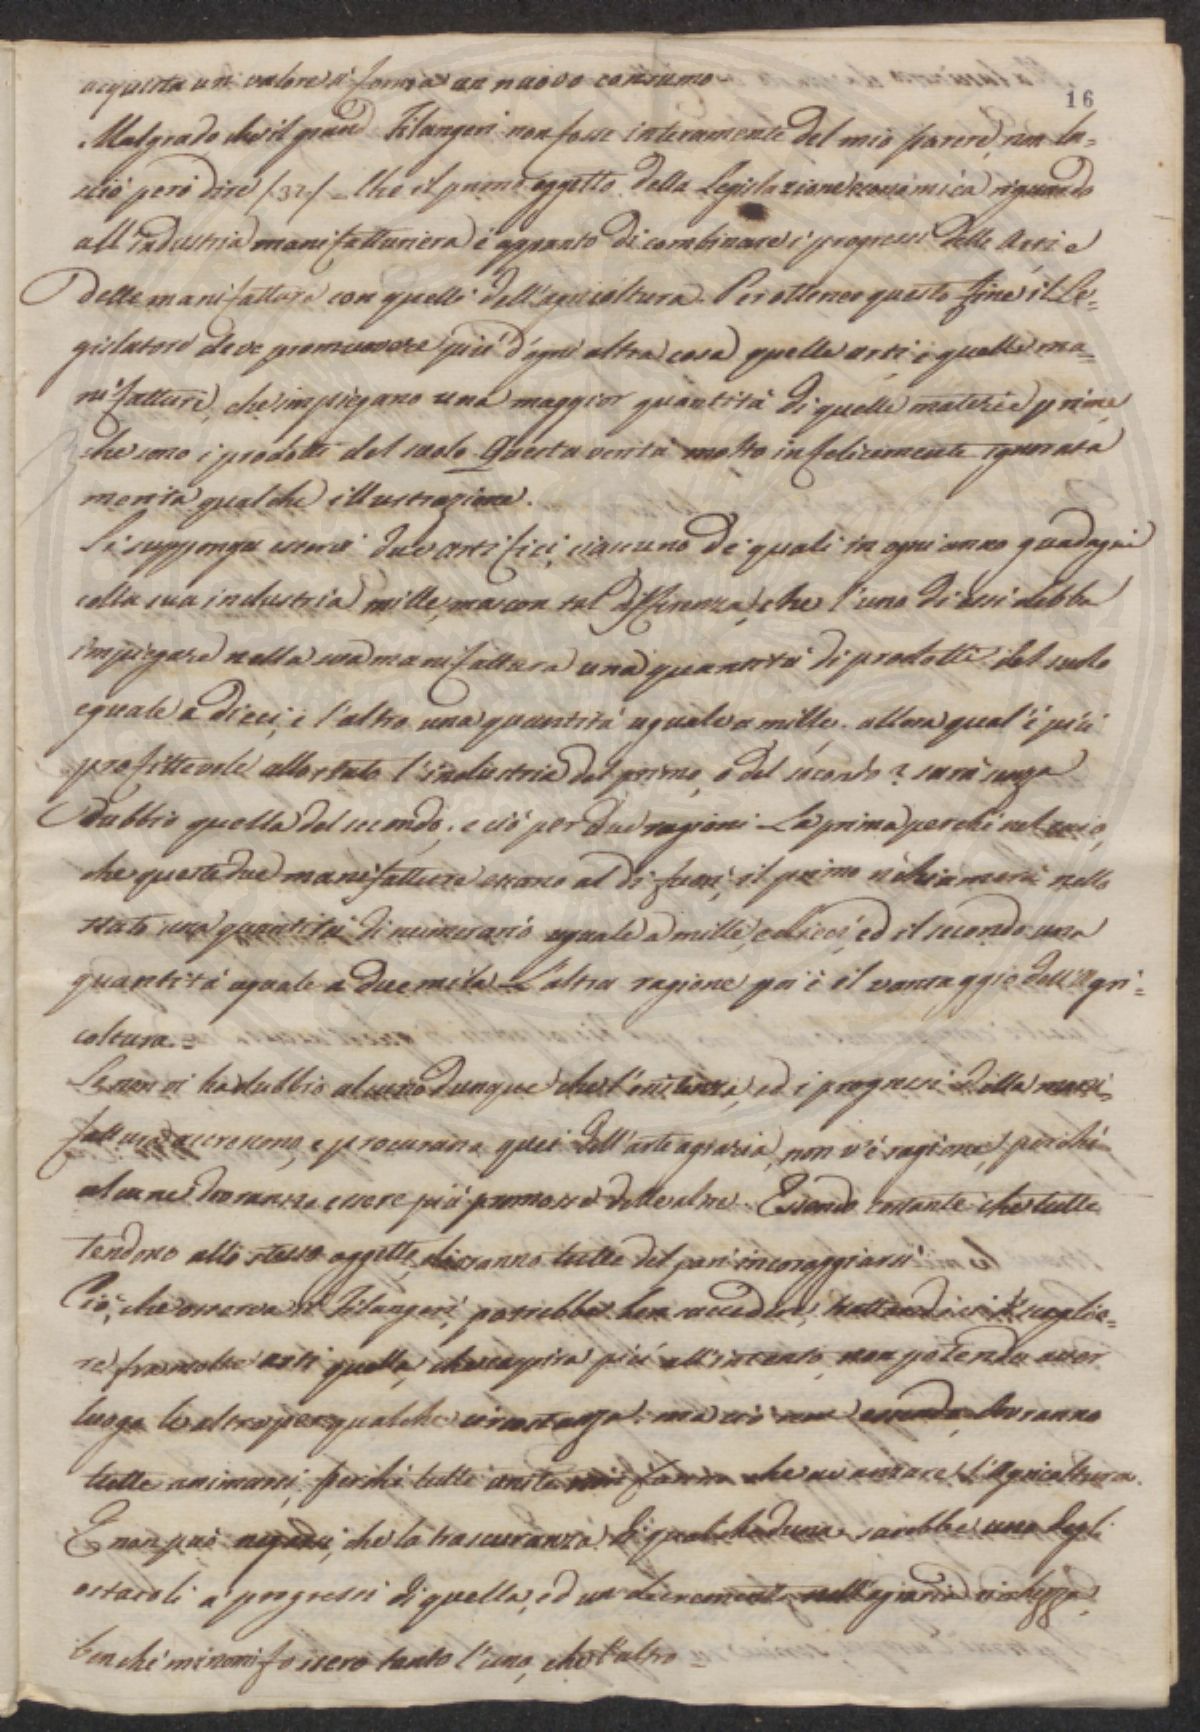 acquista un valore, e forma un nuovo consumo
16
Malgrado che il grand Filangeri non fosse interamente del mio parere, non la-
sciò però dire /32/ = Che il primo oggetto della Legislazione economica riguardo
all'industria manifatturiera è appunto di combinare i progressi delle Arti e
delle manifatture con quelli dell'agricoltura. Per ottener questo fine il Le-
gislatore deve promuovere più d'ogni altra cosa quelle arti, e quelle ma-
nifatture, che impiegano una maggior quantità di quelle materie prime,
che sono i prodotti del suolo. Questa verità molto infelicemente ignorata
merita qualche illustrazione.
Si supponga esservi due artefici, ciascuno de' quali in ogni anno guadagni
colla sua industria mille, ma con tal differenza, che l'uno di essi debba
impiegare nella sua manifattura una quantità di prodotti del suolo
eguale a dieci, e l'altro una quantità uguale a mille. allora qual'è più
profittevole allo stato l'industria del primo, o del secondo? sarà senza
dubbio quella del secondo; e ciò per due ragioni = La prima perchè nel caso,
che queste due manifatture escano al di fuori, il primo richiamerà nello
stato una quantità di numerario uguale a mille, e dieci, ed il secondo una
quantità uguale a due mila = L'altra ragione poi è il vantaggio dell'Agri-
coltura. =
Se non vi ha dubbio alcuno dunque che l'esistenza, ed i progressi della mani-
fattura accrescono, e procurano quei dell'arte agraria, non v'è ragione, perchè
alcune dovranno essere più promosse delle altre. Essendo costante che tutte
tendono allo stesso oggetto, dovranno tutte del pari incoraggiarsi
Ciò, che osserva il Filangeri, potrebbe ben succedere, trattandosi di sceglie-
re fra molte arti quella, che cospira più all'intento, non potendo aver
luogo le altre per qualche circostanza: ma ciò non essendo, dovranno
tutte animarsi, perchè tutte unite non fanno che avanzare l'Agricoltura.
E non può negarsi, che la trascuranza di qualcheduna sarebbe uno degli
ostacoli a' progressi di quella, ed un decremento nell'agraria ricchezza,
benchè minimi fossero tanto l'uno, che l'altro =